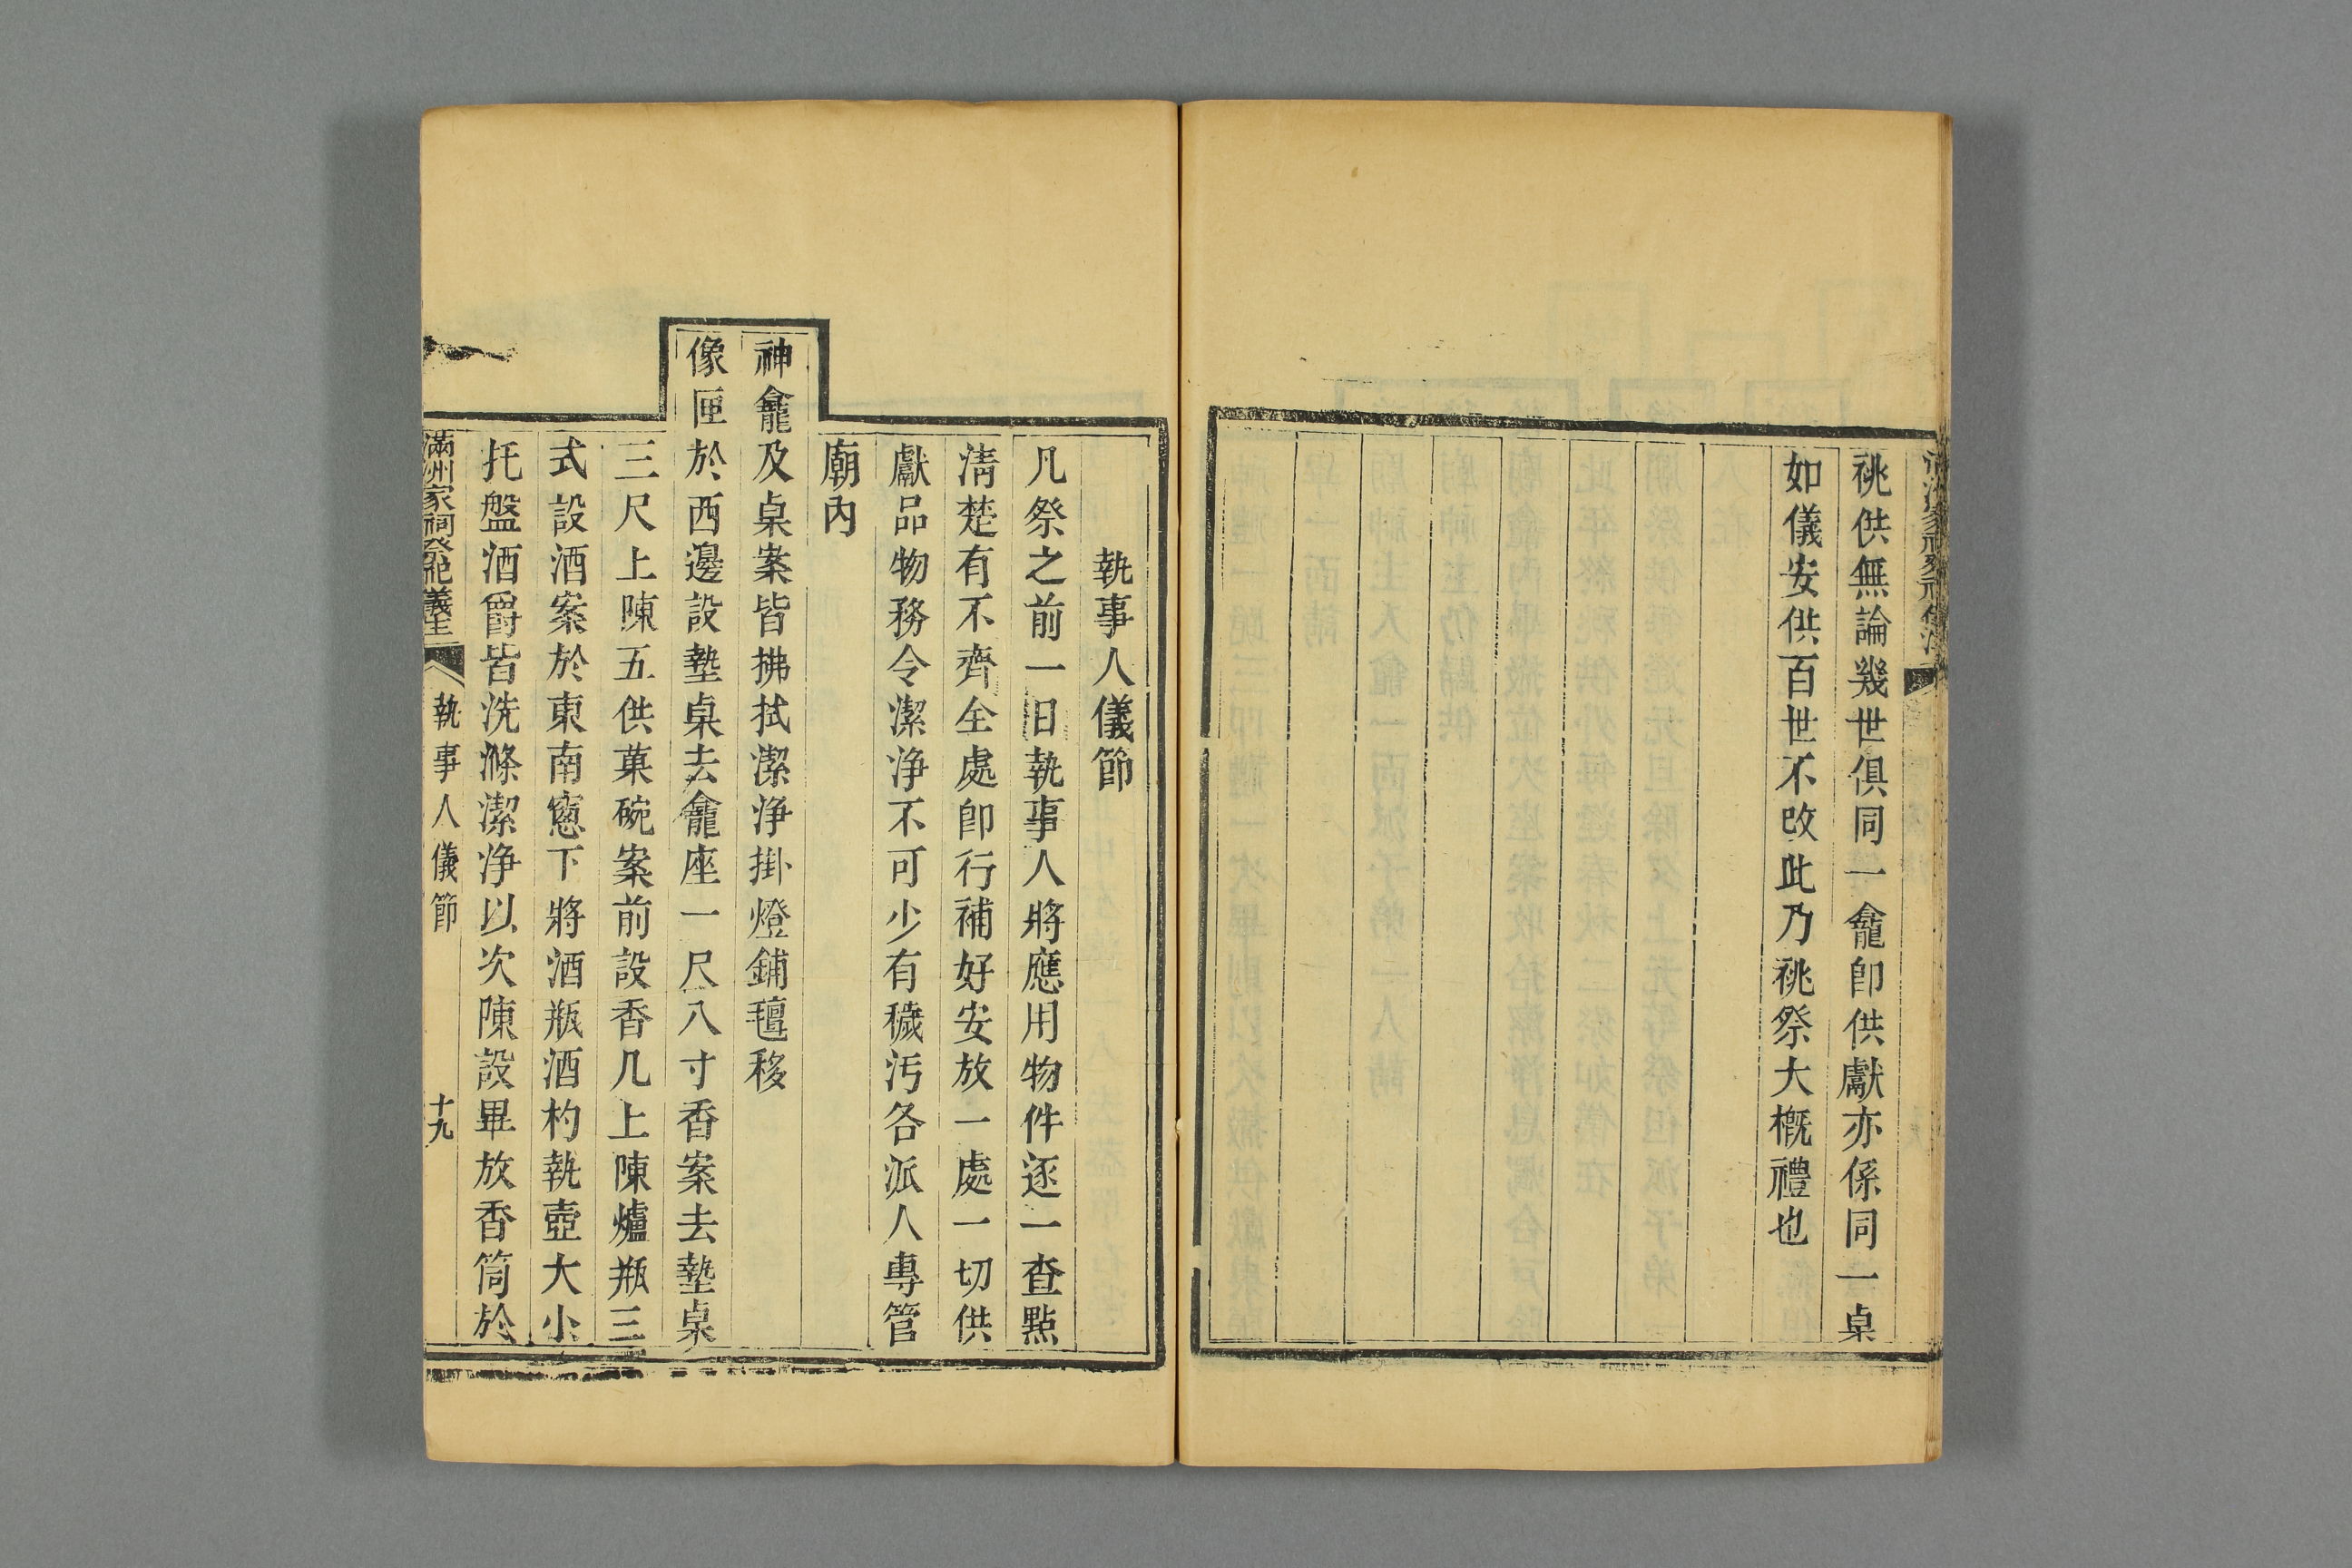 祧供無論幾世俱同一龕卽供獻亦係同一桌
如儀安供百世不改此乃祧祭大概禮也
執事人儀節
凡祭之前一日執事人將應用物件逐一查點
淸楚有不齊全處卽行補好安放一處一切供
獻品物務令潔净不可少有穢污各派人專管
廟內
神龕及桌案皆拂拭潔净掛燈鋪氊移
像匣於西邊設墊桌去龕座一尺八寸香案去墊桌
三尺上陳五供菓碗案前設香几上陳爐瓶三
式設酒案於東南窻下將酒瓶酒杓執壺大小
托盤酒爵皆洗滌潔净以次陳設畢放香筒於
滿洲家祠祭祀儀注
執事人儀節
十九